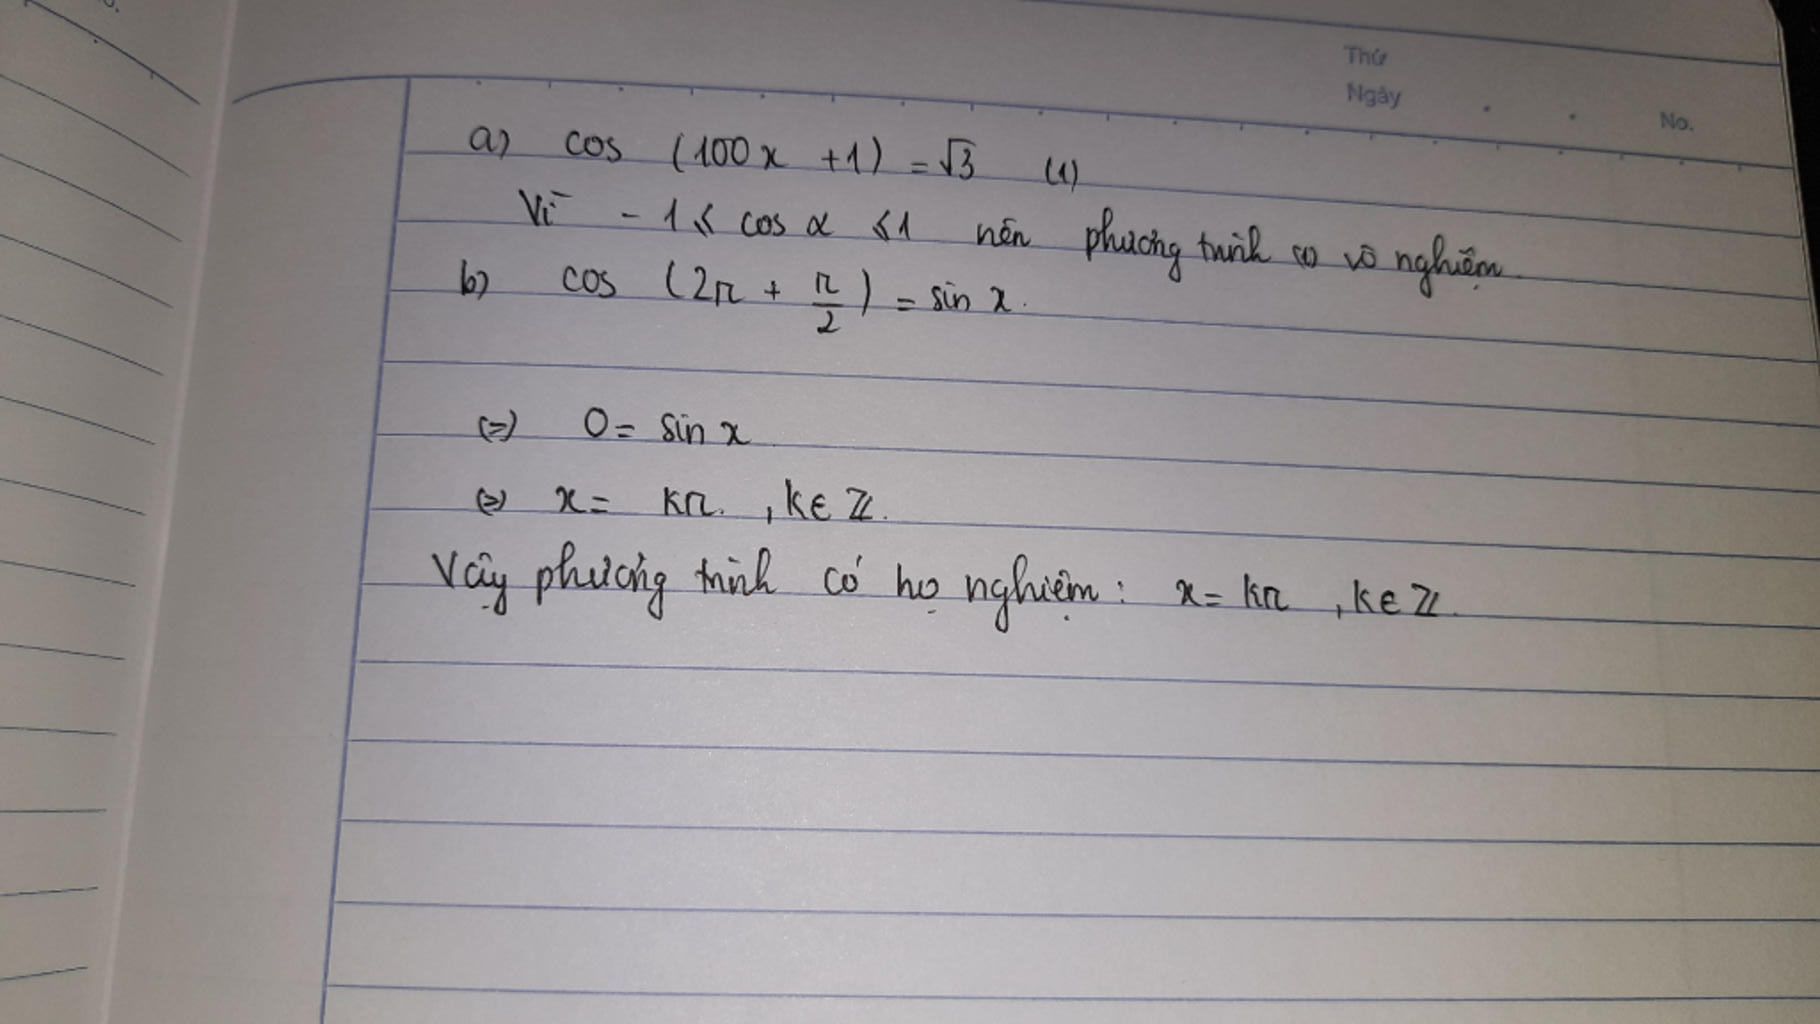 Thứ
Ngày
No.
a) cos (100x +1) = √3 (1)
Vì - 1 ≤ cos α ≤ 1 nên phương trình (1) vô nghiệm.
b) cos (2π + π/2) = sin x.
(=) 0 = sin x
(=) x = kπ. , k ∈ ℤ.
Vậy phương trình có họ nghiệm : x = kπ , k ∈ ℤ.